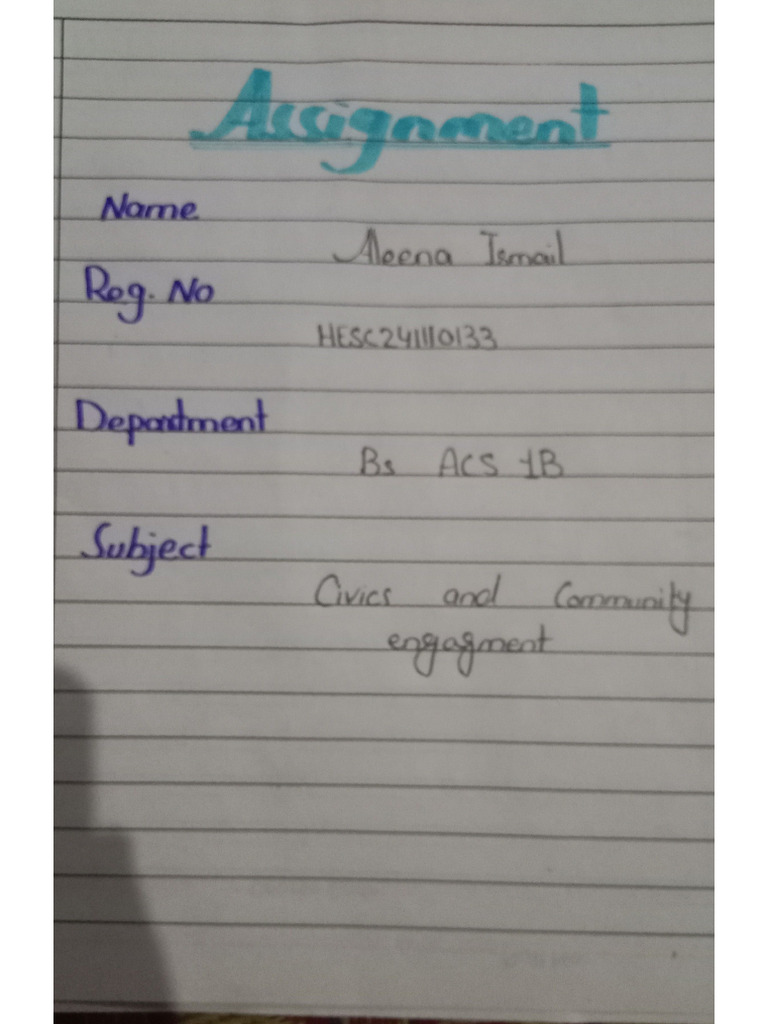 Assignment
Name
Aleena Ismail
Reg. No
HESC241110133
Department
Bs ACS 1B
Subject
Civics and Community
engagment